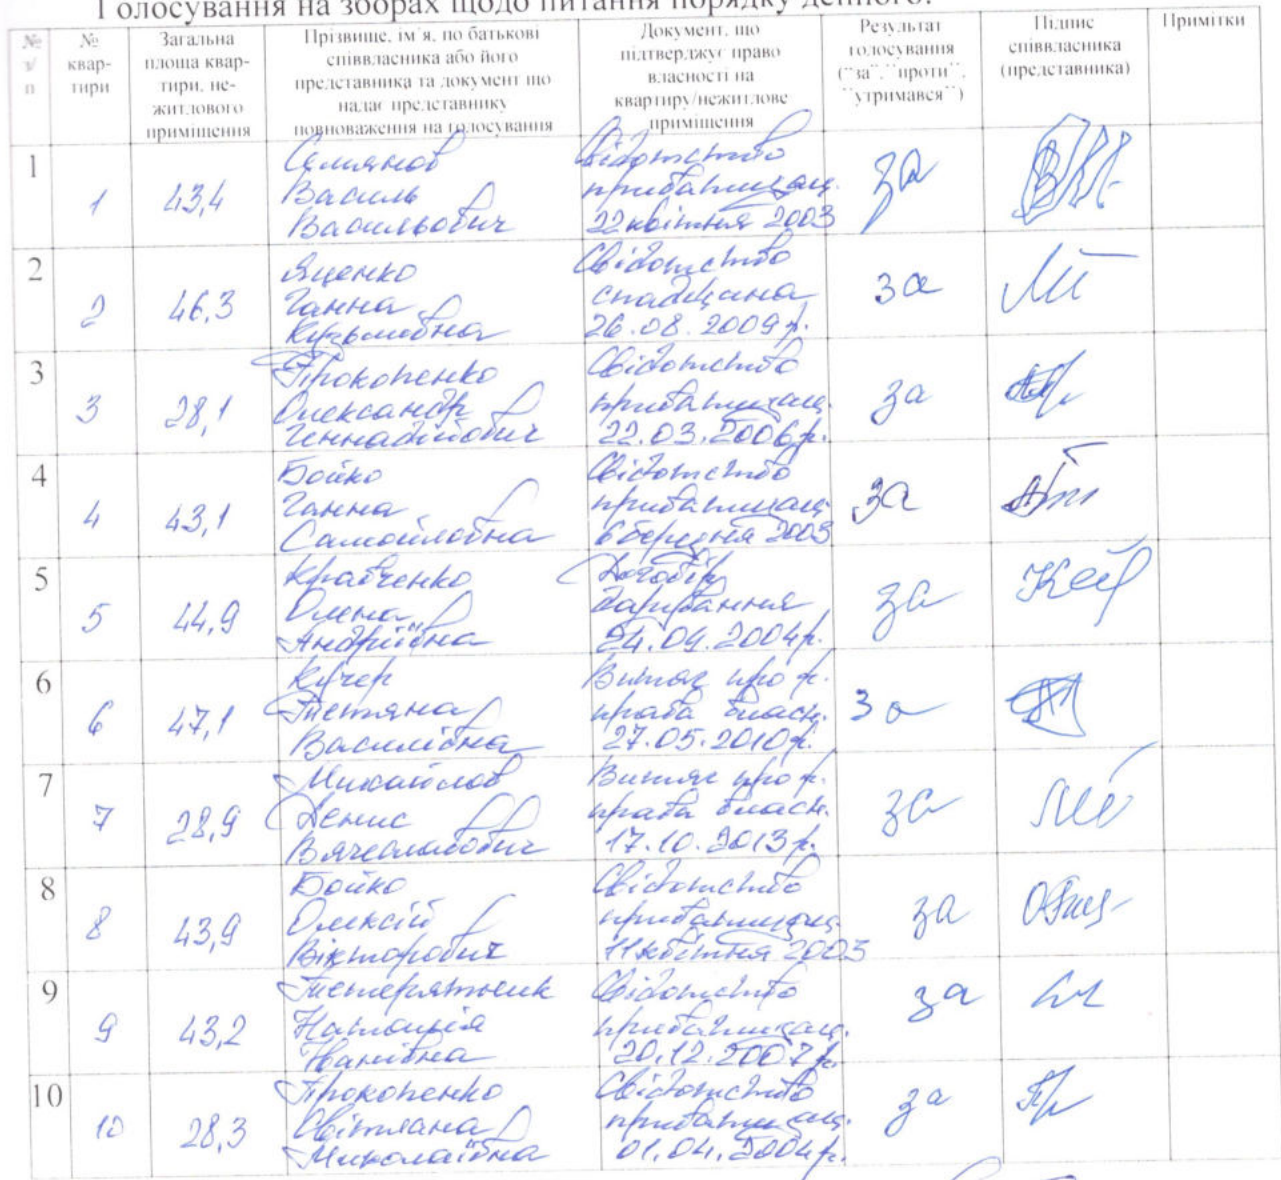 Голосування на зборах щодо питання порядку денного:
№ з/п
№ квар-тири
Загальна площа квар-тири, не-житлового приміщення
Прізвище, ім'я, по батькові співвласника або його представника та документ що надає представнику повноваження на голосування
Документ, що підтверджує право власності на квартиру/нежитлове приміщення
Результат голосування ("за", "проти", "утримався")
Підпис співвласника (представника)
Примітки
1
1
43,4
Василь
Васильович
Свідотство
приватизац.
22 квітня 2003
за
2
2
46,3
Яценко
Ганна
Кузьмівна
Свідотство
спадщина
26.08.2009 р.
за
3
3
28,1
Прокопенко
Олександр
Геннадійович
Свідотство
приватизац.
22.03.2006 р.
за
4
4
43,1
Бойко
Ганна
Самойлівна
Свідотство
приватизац
6 березня 2003
за
5
5
44,9
Кравченко
Олена
Андріївна
Договір
дарування
24.04.2004 р.
за
6
6
47,1
Кучер
Тетяна
Василівна
Витяг про р.
права власн.
27.05.2010 р.
за
7
7
28,9
Михайлов
Денис
Вячеславович
Витяг про р.
права власн.
17.10.2013 р.
за
8
8
43,9
Бойко
Олексій
Вікторович
Свідотство
приватизац.
11 квітня 2003
за
9
9
43,2
Наталія
Іванівна
Свідотство
приватизац.
20.12.2007 р.
за
10
10
28,3
Прокопенко
Світлана
Миколаївна
Свідотство
приватизац.
01.04.2004 р.
за